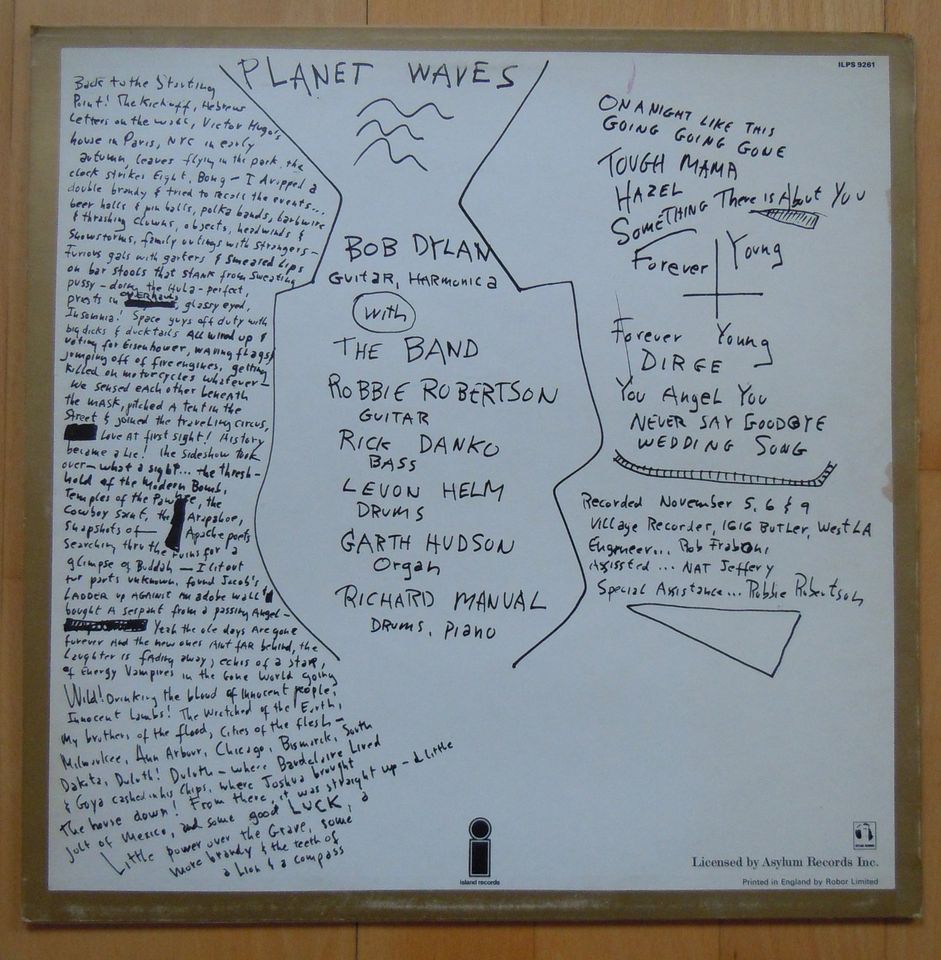 Back to the Starting
Point! The Kickoff, Hebrew
Letters on the wall, Victor Hugo's
house in Paris, NYC in early
autumn, leaves flying in the park, the
clock strikes Eight, Bong — I dripped a
double brandy & tried to recall the events...
beer halls & pin balls, polka bands, barbwire
& thrashing clowns, objects, headwinds &
Snowstorms, family outings with strangers —
Furious gals with garters & smeared Lips
on bar stools that stank from sweating
pussy — doing the Hula — perfect,
priests in overhauls, glassy eyed,
Insomnia! Space guys off duty with
big dicks & ducktails All wired up &
voting for Eisenhower, waving flags &
jumping off of fire engines, getting
killed on motorcycles whatever —
We sensed each other beneath
the mask, pitched a tent in the
Street & joined the traveling circus,
Love at first sight! History
became a Lie! The sideshow took
over — what a sight... the thresh-
hold of the Modern Bomb,
Temples of the Pawnee, the
Cowboy saint, the Arapahoe,
Snapshots of — Apache poets
searching thru the ruins for a
glimpse of Buddah — I lit out
for parts unknown, found Jacob's
LADDER up AGAINST an adobe wall &
bought A serpant from a passing Angel —
Yeah the ole days Are gone
forever And the new ones Aint fAR behind, the
Laughter is fAding away, echos of a staR,
of Energy Vampires in the Gone World going
Wild! Drinking the blood of innocent people,
Innocent Lambs! The Wretched of the Earth,
My brothers of the flood, Cities of the flesh —
Milwaukee, Ann Arbour, Chicago, Bismarck, South
Dakota, Duluth! Duluth — where Baudelaire Lived
& Goya cashed in his Chips, where Joshua brought
The house down! From there, it was straight up — a Little
jolt of Mexico, and some good LUCK, a
Little power over the Grave, some
more brandy & the teeth of
a Lion & a compass
PLANET WAVES
BOB DYLAN
GUITAR, HARMONICA
With
THE BAND
ROBBIE ROBERTSON
GUITAR
RICK DANKO
BASS
LEVON HELM
DRUMS
GARTH HUDSON
Organ
RICHARD MANUAL
DRUMS, piano
island records
ILPS 9261
ON A NIGHT LIKE THIS
GOING GOING GONE
TOUGH MAMA
HAZEL
SOMETHING There is About You
Forever Young
Forever Young
DIRGE
You Angel You
NEVER SAY GOODBYE
WEDDING SONG
Recorded November 5, 6 & 9
Village Recorder, 1616 Butler, West LA
Engineer... Rob Fraboni
Assissted... NAT Jeffery
Special Assistance... Robbie Robertson
Licensed by Asylum Records Inc.
Printed in England by Robor Limited